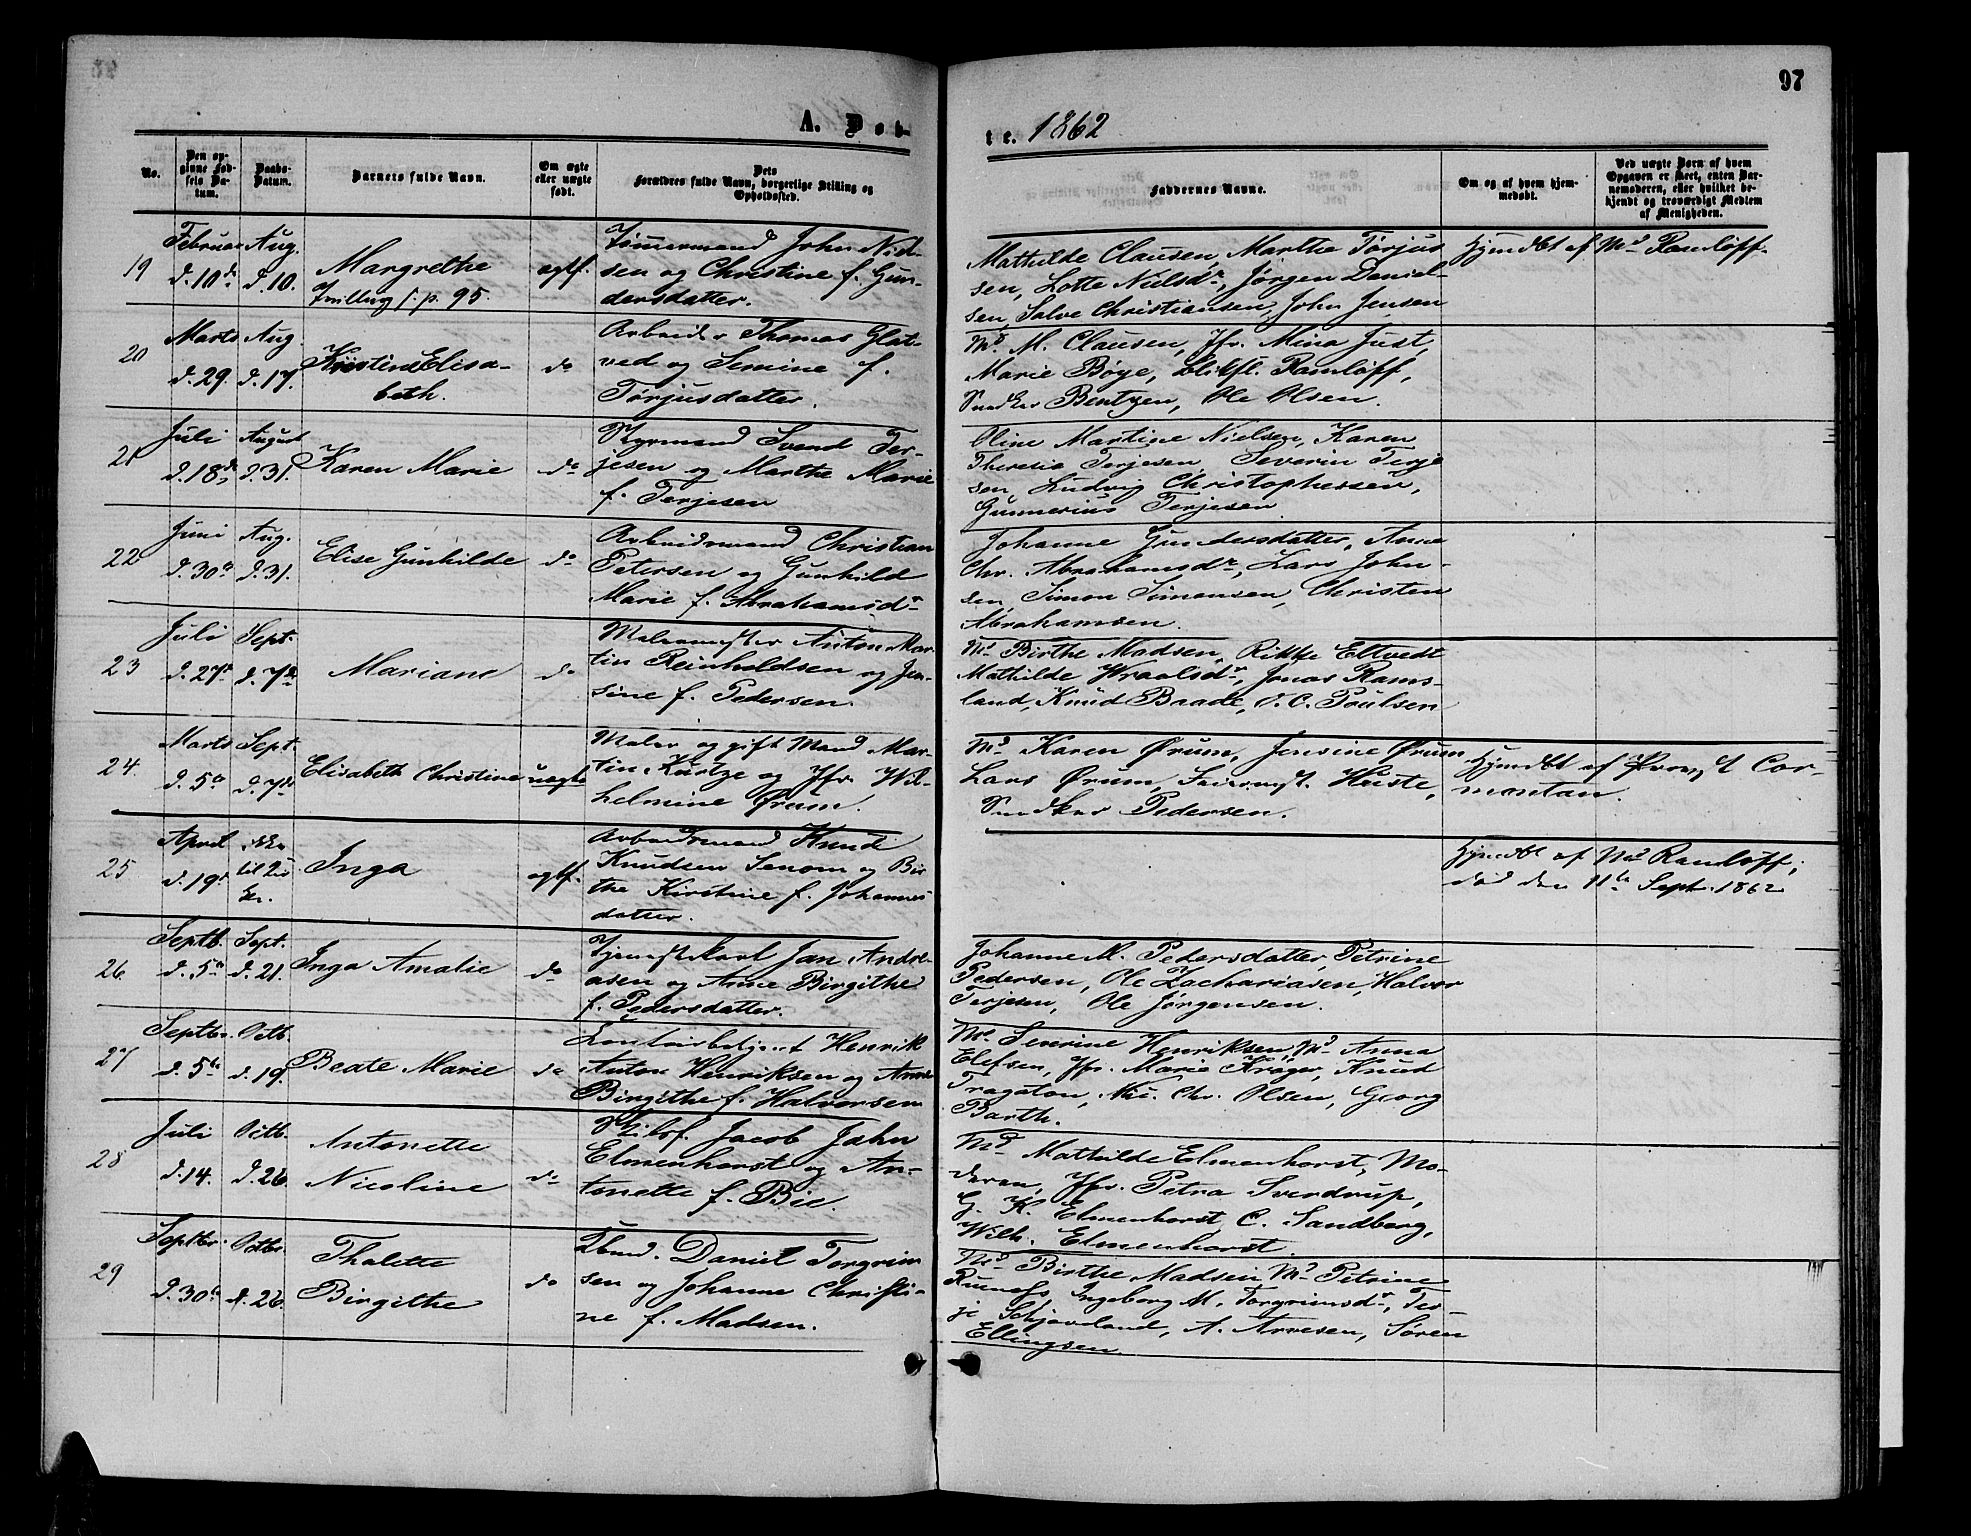 97
A. Døb-
te. 1862
No.
Den op-
givne Fød-
sels Da-
tum.
Daabs-
Datum.
Barnets fulde Navn.
Om ægte
eller uægte
født.
Dets
Forældres fulde Navn, borgerlige Stilling og
Opholdssted.
Faddernes Navne.
Om og af hvem hjem-
medøbt.
Ved uægte Børn af hvem
Opgaven er skeet, enten Bar-
nemoderen, eller hvilket be-
kjendt og troværdigt Medlem
af Menigheden.
19
Februar
d. 10de
Aug.
d. 10.
Margrethe
Tvilling s. p. 95.
ægtf.
Tømmermand John Niel-
sen og Christine f. Gun-
dersdatter.
Mathilde Clausen, Marthe Torjus
sen, Lotte Nielsdr, Jørgen Daniel-
sen, Salve Christiansen, John Jensen
Hjemdbt af Md Ramløff.
20
Marts
d. 29.
Aug.
d. 17.
Kirstine Elisa-
beth.
do
Arbeider Thomas Glat-
ved og Semine f.
Torjusdatter.
Md M. Clausen, Jfr. Mina Just,
Marie Bøye, Ramløff,
Snedker Bentzen, Ole Olsen.
21
Juli
d. 18de
August
d. 31.
Karen Marie
do
Styrmand Svend Ter-
jesen og Marthe Marie
f. Terjesen
Oline Martine Nielsen, Karen
Theresie Terjesen, Severin Terje
sen, Ludvig Christophersen,
Gunnerius Terjesen
22
Juni
d. 30te
Aug.
d. 31.
Elise Gunhilde
do
Arbeidsmand Christian
Petersen og Gunhild
Marie f. Abrahamsdr
Johanne Gundersdatter, Anne
Chr. Abrahamsdr, Lars John-
sen, Simon Simonsen, Christen
Abrahamsen.
23
Juli
d. 27de
Sept.
d. 7de
Mariane
do
Malermester Anton Mar-
tin Reinholdsen og Jen-
sine f. Pedersen.
Md Birthe Madsen, Rikke Eltvedt
Mathilde Wraalsdr, Jonas Rams-
land, Knud Baade, O. C. Poulsen
24.
Marts
d. 5te
Sept.
d. 7de
Elisabeth Christine
uægte
Maler og gift Mand Mar-
tin Kurtze og Jfr. Wil-
helmine Ørum.
Md Karen Ørum, Jensine Ørum
Lars Ørum, Huste,
Snedker Pedersen.
Hjemdbt af Provst Cor-
montan.
25
April
d. 19de
ikke
til Ki
ke.
Inga
ægtf.
Arbeidsmand Knud
Knudsen Senom og Bir
the Kirstine f. Johannes
datter.
Hjemdbt af Md Ramløff;
død den 11te Sept. 1862
26
Septb.
d. 5te
Sept.
d. 21.
Inga Amalie
do
Tjenestekarl Jan Andre-
asen og Anne Birgithe
f. Pedersdatter.
Johanne M. Pedersdatter, Petrine
Pedersen, Ole Zachariasen, Halvor
Terjesen, Ole Jørgensen.
27
Septbr.
d. 5te
Octb.
d. 19.
Beate Marie
do
Contoirbetjent Henrik
Anton Henriksen og Anne
Birgithe f. Halvorsen
Md Severine Henriksen, Md Anna
Elefsen, Jfr. Marie Krøger, Knud
Tragaton, Nic. Chr. Olsen, Georg
Barth.
28
Juli
d. 14.
Octb.
d. 26
Antonette
Nicoline
do
Skibsf. Jacob Jahn
Elmenhorst og An-
tonette f. Bie.
Md Mathilde Elmenhorst, Mo-
deren, Jfr. Petra Sverdrup,
G. K. Elmenhorst, C. Sandberg,
Wilh. Elmenhorst.
29
Septbr.
d. 30te
Octbr.
d. 26.
Thalette
Birgithe
do
Daniel Torgrim
sen og Johanne Christi-
ne f. Madsen.
Md Birthe Madsen, Md Petrine
Ingeborg M. Torgrimsdr, Ter-
je Schjøvland, A. Arvesen, Søren
Ellingsen